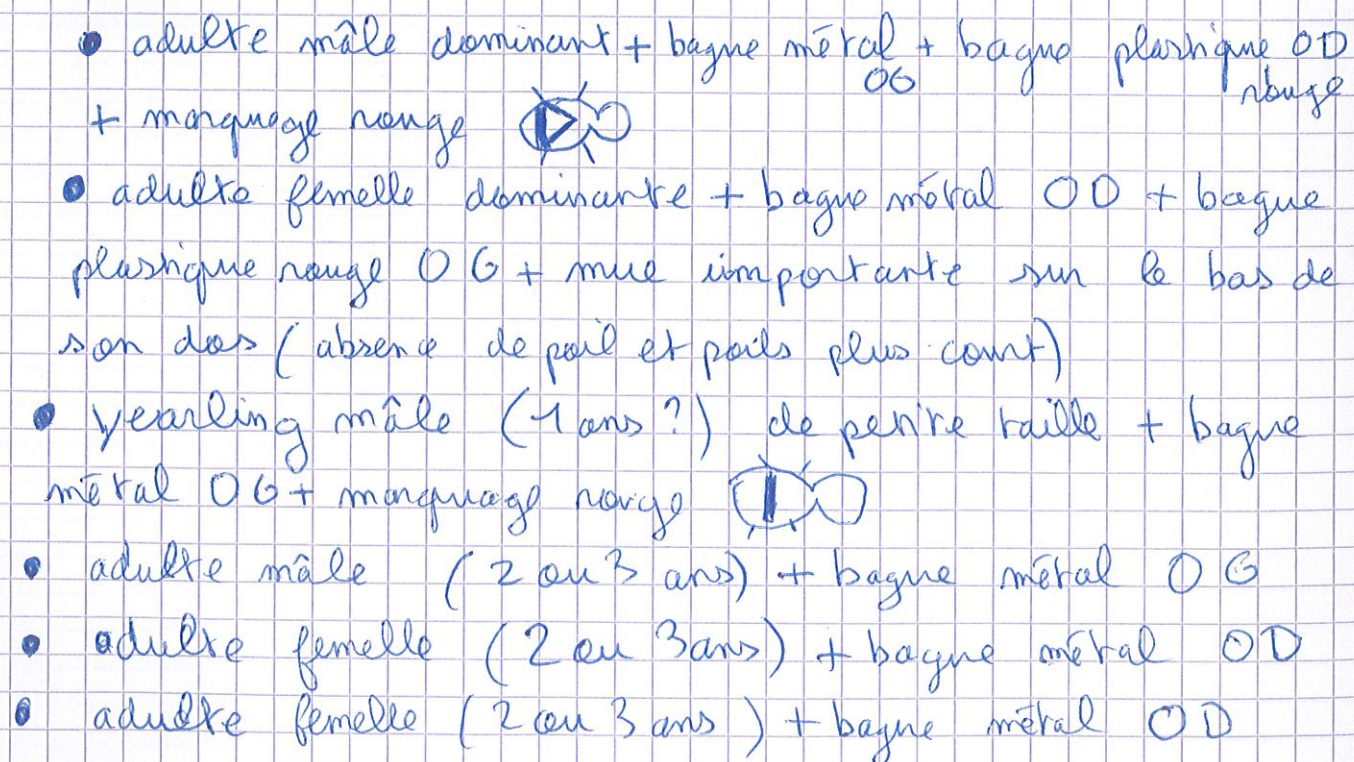 • adulte mâle dominant + bague métal OG + bague plastique OD rouge
+ marquage rouge
• adulte femelle dominante + bague métal OD + bague
plastique rouge OG + mue importante sur le bas de
son dos (absence de poil et poils plus court)
• yearling mâle (1 ans ?) de petite taille + bague
métal OG + marquage rouge
• adulte mâle (2 ou 3 ans) + bague métal OG
• adulte femelle (2 ou 3 ans) + bague métal OD
• adulte femelle (2 ou 3 ans) + bague métal OD